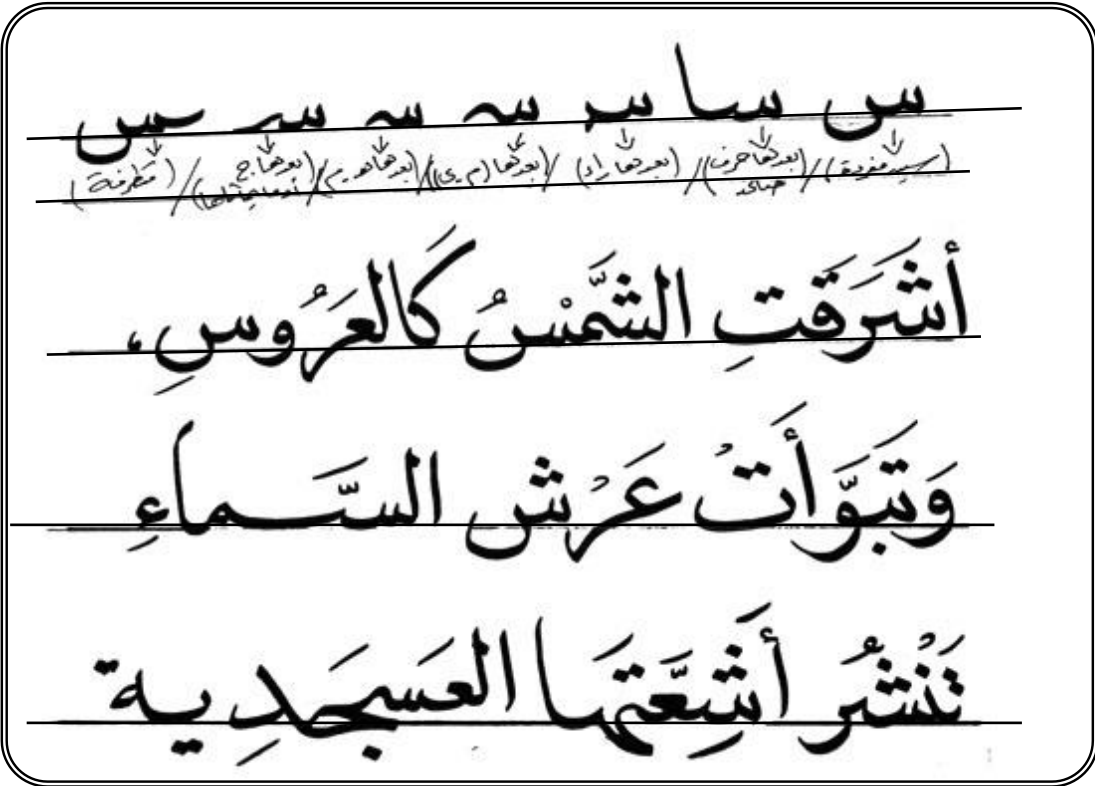 س سا سر
(سين مفردة) / (بعدها حرف صاعد) / (بعدها راء) / (بعدها (م.ي)) / (بعدها / (بعدها ج أو ما يماثلها) / (متطرفة)
أشَرَقتِ الشَّمْسُ كَالعَرُوسِ،
وَتَبَوَّأَتْ عَرْش السَّـــماءِ
تَنْشُر أَشِعَّتَهـا العَسجَـدِيـة